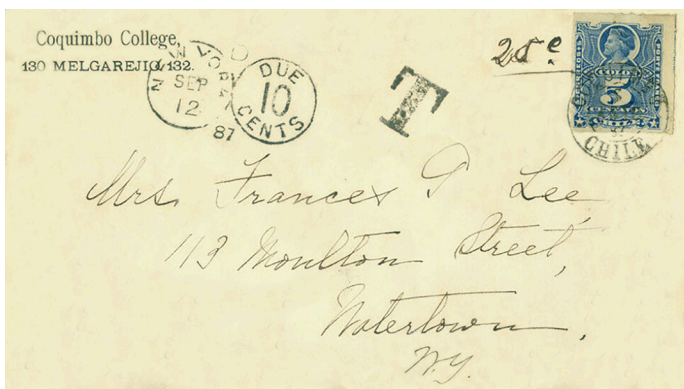 Coquimbo College,
130 MELGAREJO, 132.
NEW YORK
SEP
12
87
DUE
10
CENTS
T
25 c
COLON
5
CENTAVOS
CHILE
Mrs. Frances P Lee,
113 Moulton Street,
Watertown,
N.Y.